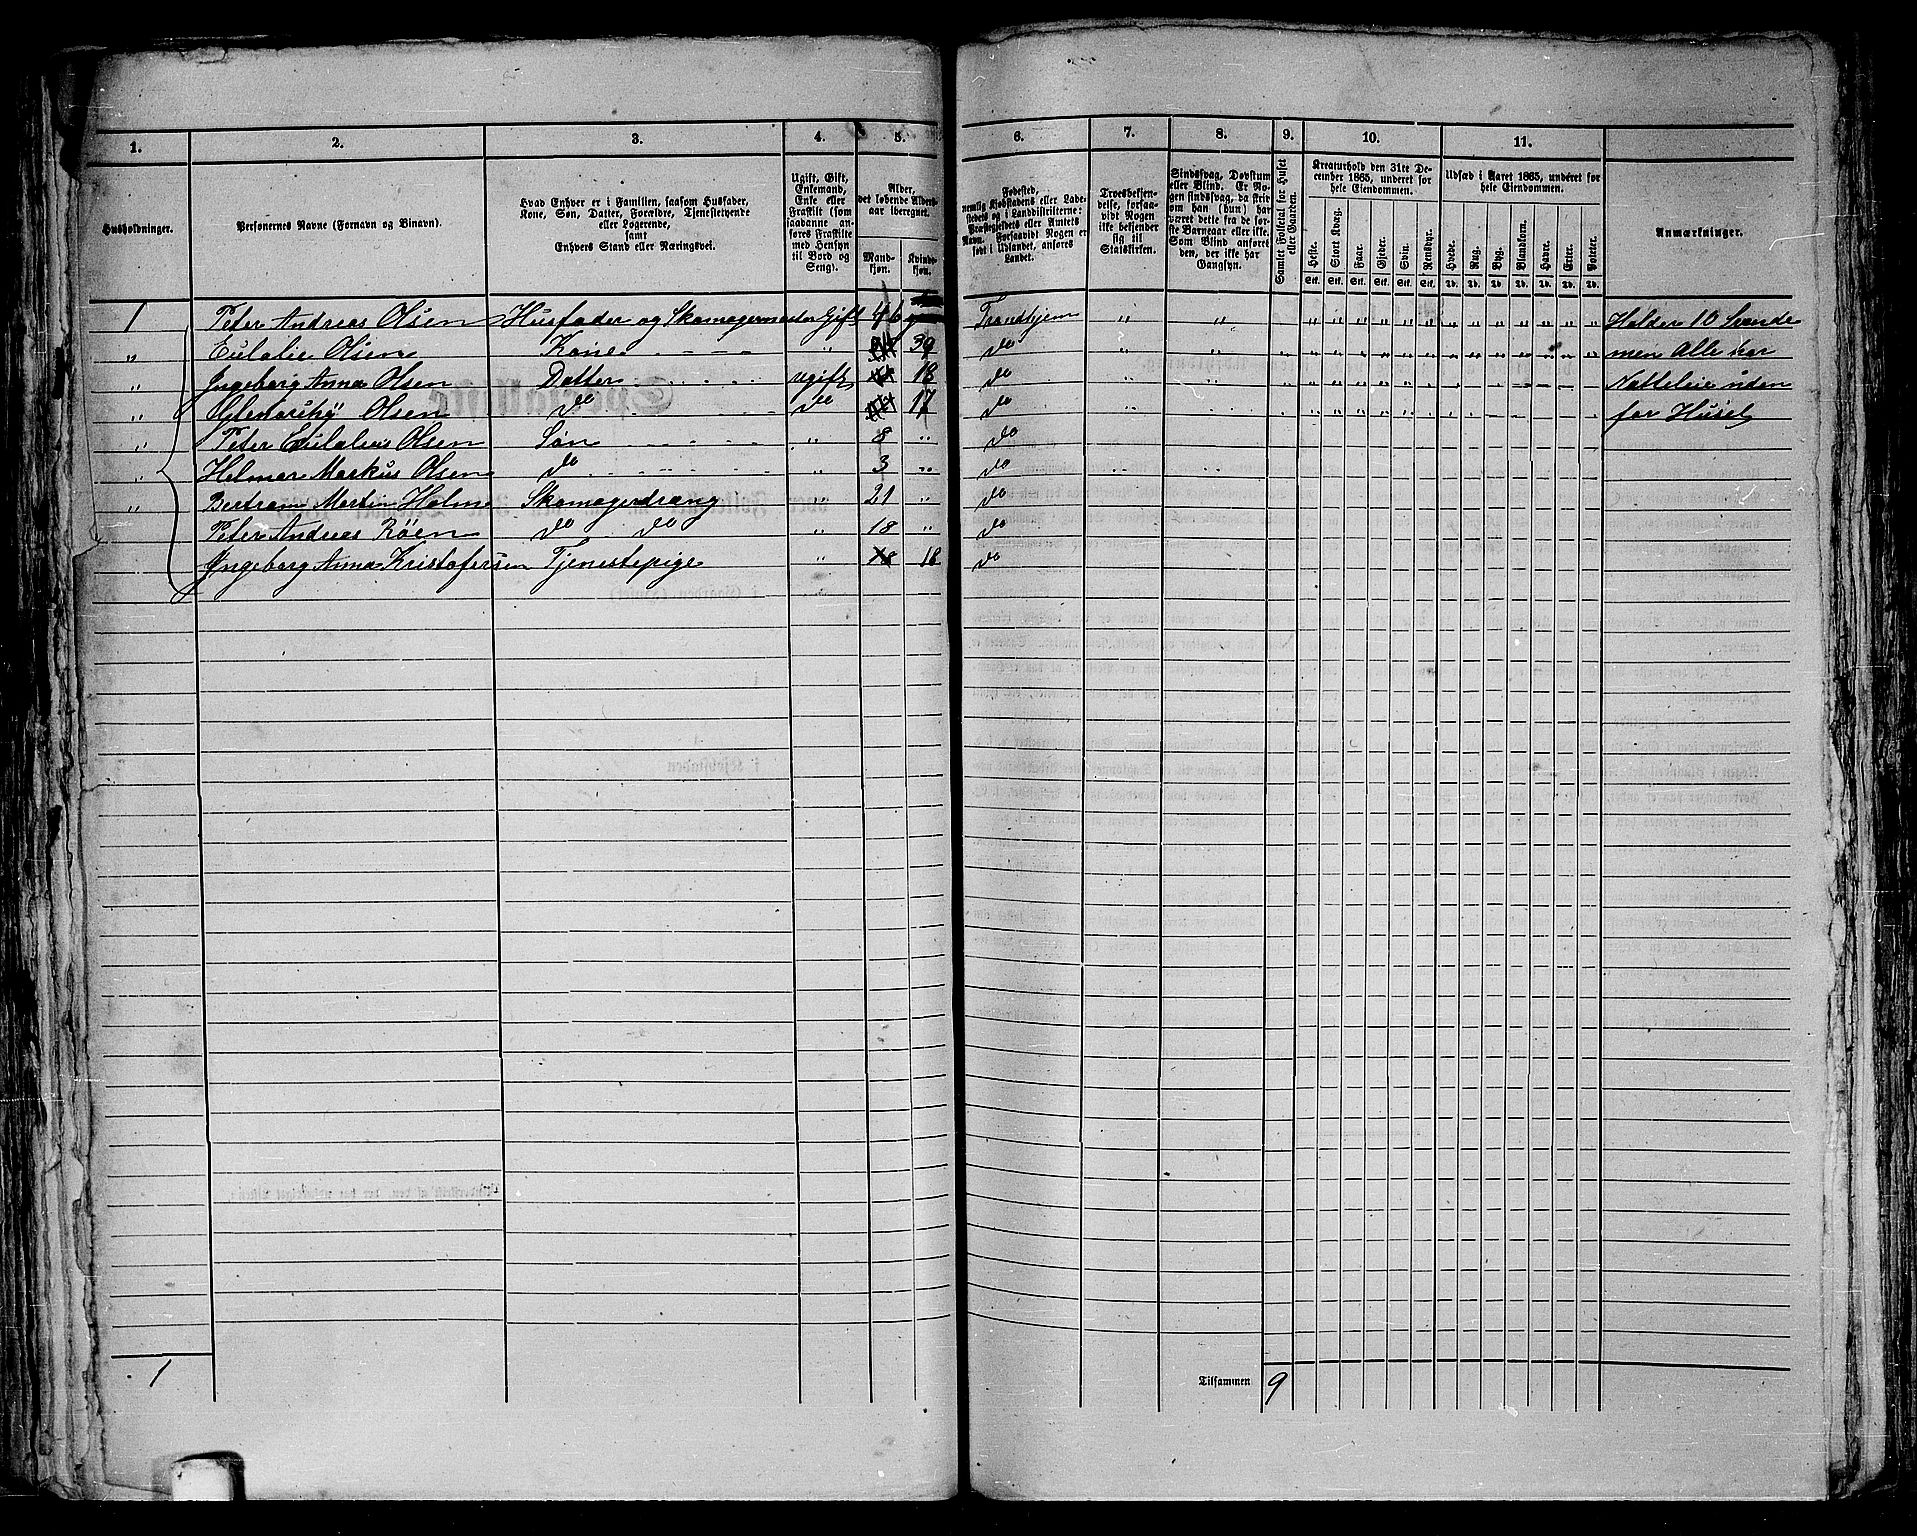 1. 2. 3. 4. 5. 6. 7. 8. 9. 10. 11.
Husholdninger.
Personernes Navne (Fornavn og Binavn).
Hvad Enhver er i Familien, saasom Husfader,
Kone, Søn, Datter, Forældre, Tjenestetyende
eller Logerende,
samt
Enhvers Stand eller Næringsvei.
Ugift, Gift,
Enkemand,
Enke eller
Fraskilt (som
saadanne an-
føres Fraskilte
med Hensyn
til Bord og
Seng).
Alder,
det løbende Alders-
aar iberegnet.
Mand-
kjøn.
Kvinde-
kjøn.
Fødested,
nemlig Kjøbstadens eller Lade-
stedets og i Landdistrikterne:
Præstegjeldets eller Amtets
Navn. Forsaavidt Nogen er
født i Udlandet, anføres
Landet.
Troesbekjen-
delse, forsaa-
vidt Nogen
ikke bekjender
sig til
Statskirken.
Sindssvag, Døvstum
eller Blind. Er No-
gen sindssvag, da skriv
om han (hun) har
været dette fra de før-
ste Barneaar eller ikke.
Som Blind anføres
den, der ikke har
Gangsyn.
Samlet Folketal for Huset
eller Gaarden.
Kreaturhold den 31te De-
cember 1865, underet for
hele Eiendommen.
Heste.
Stort Kvæg.
Faar.
Gjeder.
Svin.
Rensdyr.
Stk. Stk. Stk. Stk. Stk. Stk.
Udsæd i Aaret 1865, underet for
hele Eiendommen.
Hvede.
Rug.
Byg.
Blandkorn.
Havre.
Erter.
Poteter.
Td. Td. Td. Td. Td. Td. Td.
Anmærkninger.
1 Peter Andreas Olsen Husfader og Skomagermester Gift 46 Trondhjem " " Holder 10 Svende
" Eulalie Olsen Kone " 39 do " " men Alle har
" Ingeborg Anna Olsen Datter ugift 18 do " " Natteleie uden
" Olsen do do 17 do for Huset
" Peter Eulalius Olsen Søn " 8 " do
" Helmer Markus Olsen do " 3 " do
" Bertram Martin Holm Skomagerdræng " 21 " do
Peter Andreas Röen do do " 18 " do
Ingeborg Anna Kristofersen Tjenestepige " 18 do
1
Tilsammen 9